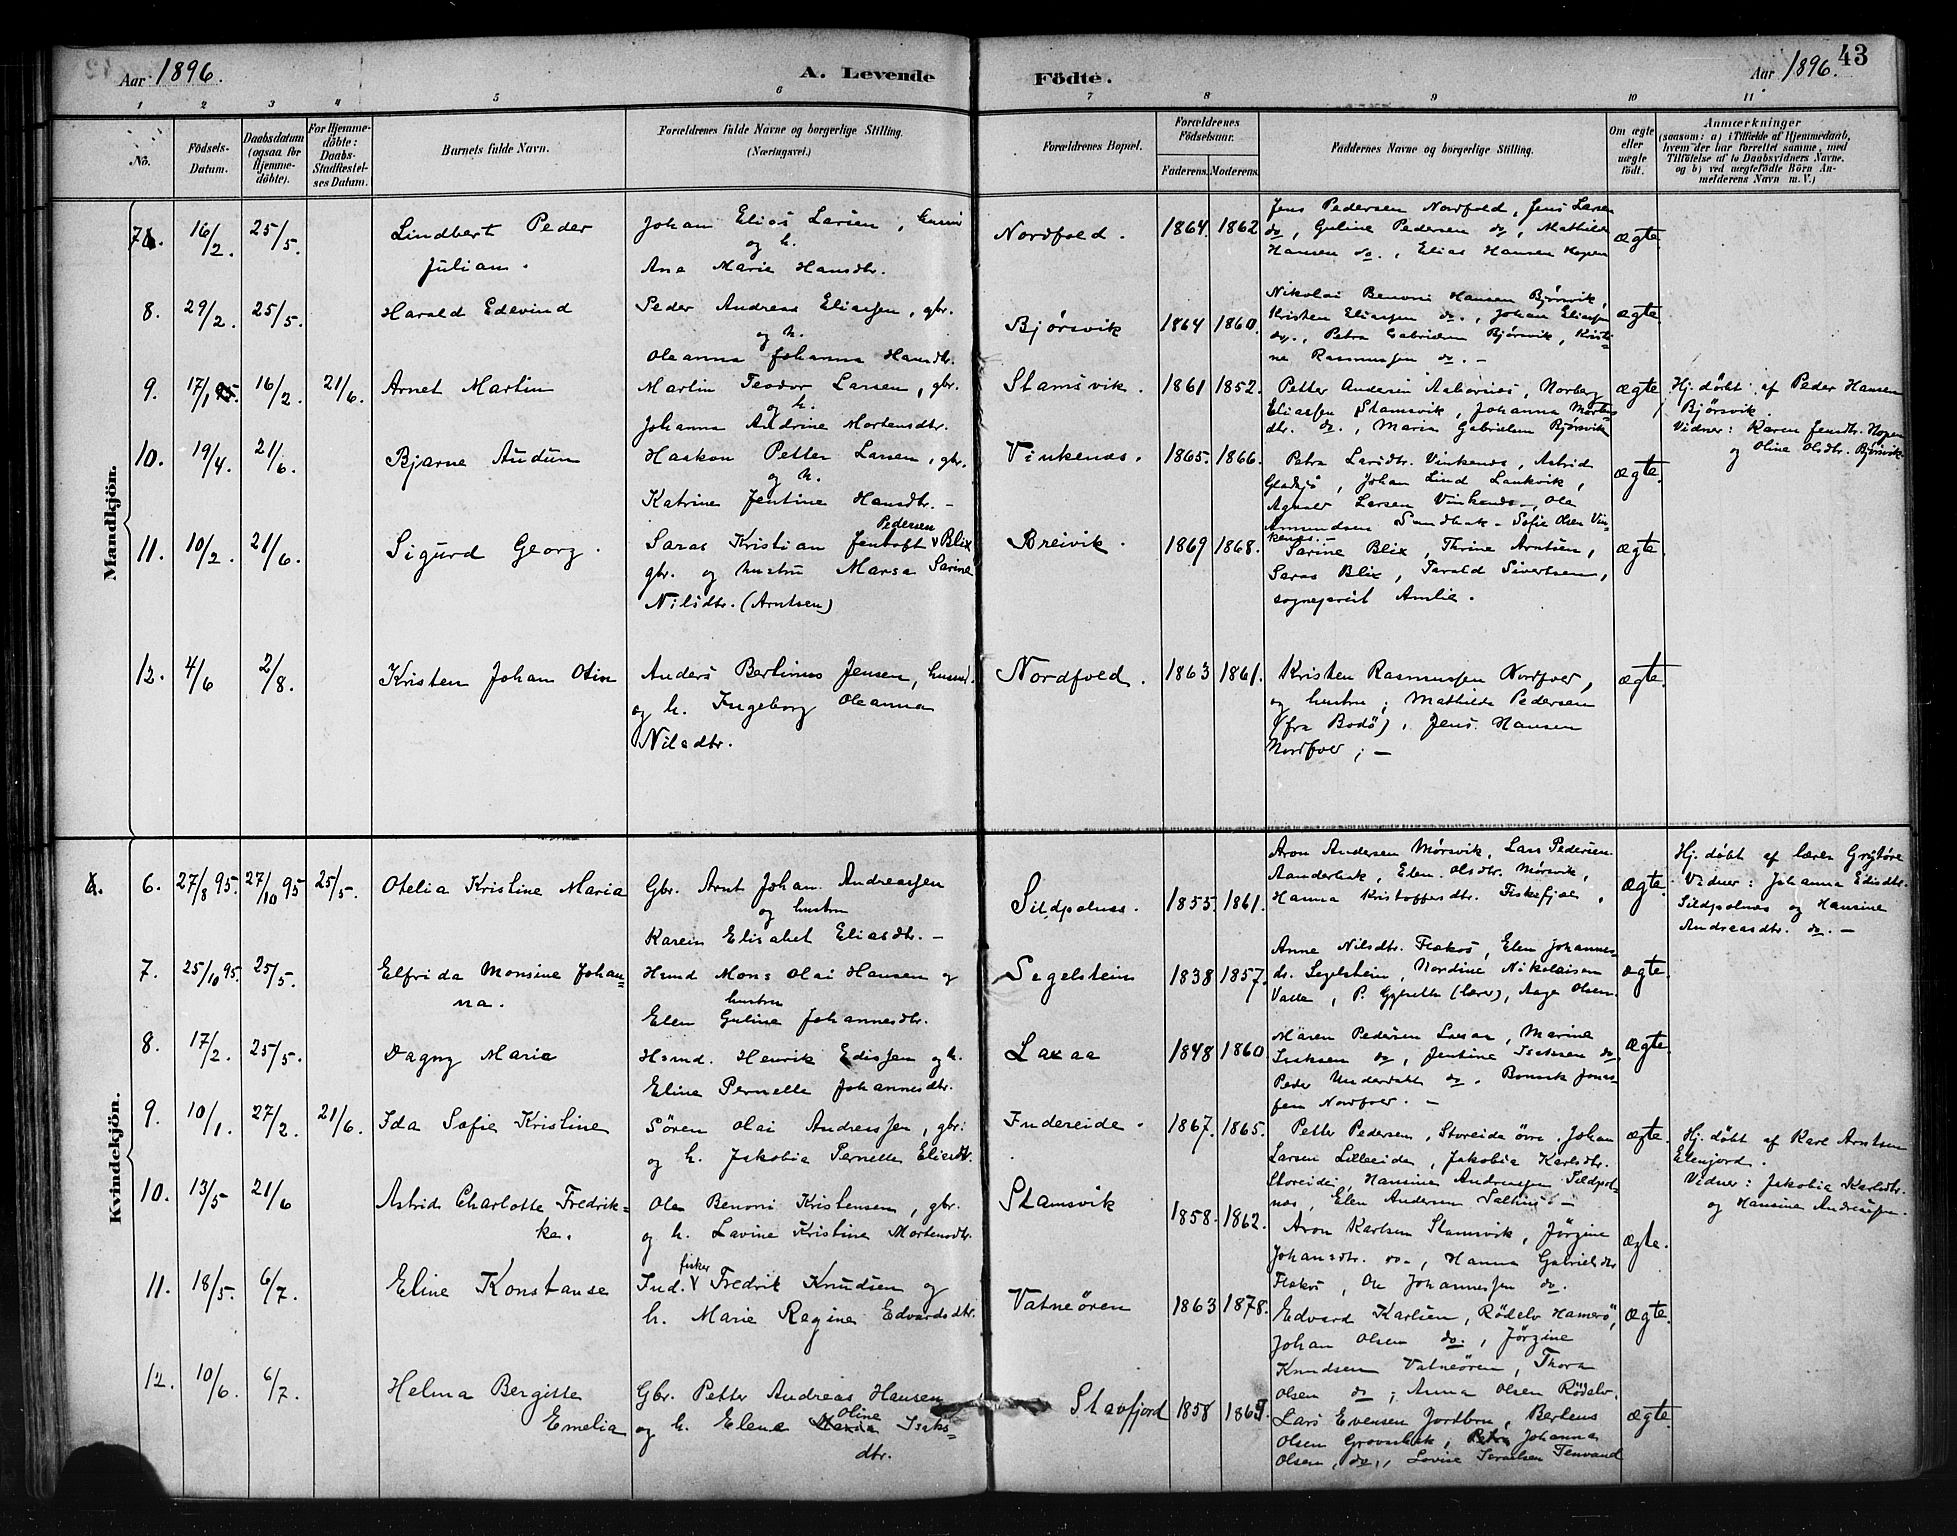 43
Aar 1896.
A. Levende Födte.
Aar 1896.
1 2 3 4 5 6 7 8 9 10 11
No.
Födsels-Datum.
Daabsdatum (ogsaa for Hjemme-döbte).
For Hjemme-döbte: Daabs-Stadfæstel-ses Datum.
Barnets fulde Navn.
Forældrenes fulde Navne og borgerlige Stilling. (Næringsvei.)
Forældrenes Bopæl.
Forældrenes Födselsaar.
Faderens. Moderens.
Faddernes Navne og borgerlige Stilling.
Om ægte eller uægte födt.
Anmærkninger
(saasom: a) i Tilfælde af Hjemmedaab, hvem der har forrettet samme, med Tilföielse af to Daabsvidners Navne, og b) ved uægtefödte Börn Anmelderens Navn m. V.)
Mandkjön.
7. 16/2. 25/5. Lindbert Peder Julian.
Johan Elias Larsen,
og h.
Ane Marie Hansdtr.
Nordfold. 1864. 1862
Jens Pedersen Nordfold, Jens Larsen
do, Guline Pedersen do, Mathilde
Hansen do., Elias Hansen Hopen
ægte.
8. 29/2. 25/5. Harald Edevind
Peder Andreas Eliassen, gbr.
og h.
Oleanna Johanna Hansdtr.
Bjørsvik 1864 1860.
Nikolai Benoni Hansen Bjørsvik,
Kristen Eliassen do., Johan Eliassen
do., Petra Gabrielsen Bjørsvik, Kristi-
ne Rasmussen do. -
ægte.
9. 17/1 95. 16/2. 21/6. Arnet Martin
Martin Teodor Larsen, gbr.
og h.
Johanna Andrine Mortensdtr.
Stamsvik. 1861 1852.
Petter Andersen, Norberg
Eliassen Stamsvik, Johanna Mortens
dtr. do., Maria Gabrielsen Bjørsvik
ægte
Hj. døbt af Peder Hansen
Bjørsvik.
Vidner: Karen Jensdtr. Hopen
og Oline Olsdtr. Bjørsvik
10. 19/4. 21/6. Bjarne Audun
Haakon Petter Larsen, gbr.
og h.
Katrine Jentine Hansdtr. -
Vinkenes. 1865. 1866.
Petra Larsdtr. Vinkenes, Astrid
, Johan Lind
Larsen Vinkenes, Ole
Amundsen - Sofie Olsen Vin-
kenes. -
ægte.
11. 10/2. 21/6. Sigurd Georg.
Saras Kristian Jentoft Pedersen Blix
gbr. og hustru Marsa Sarine
Nilsdtr. (Arntsen)
Breivik. 1869 1868.
Sarine Blix, Thrine Arntsen,
Saras Blix, Tarald Sivertsen,
sogneprest Amlie.
ægte.
12. 4/6 2/8. Kristen Johan Otin
Anders Bertinus Jensen, husmd.
og h. Ingeborg Oleanna
Nilsdtr.
Nordfold. 1863 1861.
Kristen Rasmussen Nordfold,
og hustru; Mathilde Pedersen
(fra Bodö), Jens Hansen
Nordfold; -
ægte.
Kvindekjön.
6. 27/8 95. 27/10 95 25/5. Otelia Kristine Maria
Gbr. Arnt Johan Andreassen
og hustru
Karen Elisabet Eliasdtr. -
Sildpolnes. 1855. 1861.
Aron Andersen Mørsvik, Lars Pedersen
Aanderbak, Elen Olsdtr. Mørsvik,
Hanna Kristoffersdtr. Fiskefjel,
ægte.
Hj. døbt af lærer Grytöre
Vidner: Johanna Edisdtr.
Sildpolnes og Hansine
Andreasdtr. do. -
7. 25/10 95. 25/5. Elfrida Monsine Johan-
na.
Hsmd Mons Olai Hansen og
hustru
Elen Guline Johannesdtr.
Segelstein 1838 1857.
Anne Nilsdtr. Flekøs, Elen Johannes-
dt. Segelstein, Nordine Nikolaisen
, P. (lærer), Aage Olsen.
ægte
8. 17/2. 25/5. Dagny Marie
Hsmd. Henrik Edissen og h.
Eline Pernelle Johannesdtr.
Laxaa 1848 1860
Maren Pedersen Laxaa, Marine
Isaksen do, Jentine Isaksen do
Peder Underdahl do. Jonas-
sen Nordfold. -
ægte.
9. 10/1. 27/2. 21/6. Ida Sofie Kristine
Sören Olai Andreassen, gbr.
og h. Jakobia Pernelle Eliasdt.
Indereide. 1867. 1865.
Petter Pedersen, Storeide övre. Johan
Larsen Lilleeide, Jakobia Karlsdtr.
Storeide, Hansine Andreassen Sildpol-
nes, Elen Andersen. -
ægte.
Hj. døbt af Karl Arntsen
Elenjord.
Vidner: Jakobia Karlsdtr.
og Hansine Andreassen.
10. 13/5 21/6 Astrid Charlotte Fredrik-
ke.
Ole Benoni Kristensen, gbr.
og h. Lavine Kristine Mortensdtr.
Stamsvik 1858. 1862.
Aron Karlsen Stamsvik, Jörgine
Johansdtr. do., Hanna Gabrielsdtr
Flekøs, Ole Johannessen do.
ægte.
11. 18/5. 6/7. Eline Konstanse
Ind. fisker Fredrik Knudsen og
h. Marie Regine Edvardsdtr.
Vatneören 1863 1878.
Edvard Karlsen, Rödelv Hamerö,
Johan Olsen do., Jörgine
Knudsen Vatneören, Thora
Olsen do, Anna Olsen Rödelv.
ægte.
12. 10/6. 6/7. Helma Bergitte
Emelia
Gbr. Petter Andreas Hansen
og h. Elena Oline Isaks-
dtr.
Stavfjord 1858 1869.
Lars Evensen Jordbru, Berteus
Olsen Grovarbak, Johanna
Olsen, do., Lovise Israelsen Tenvand
ægte.